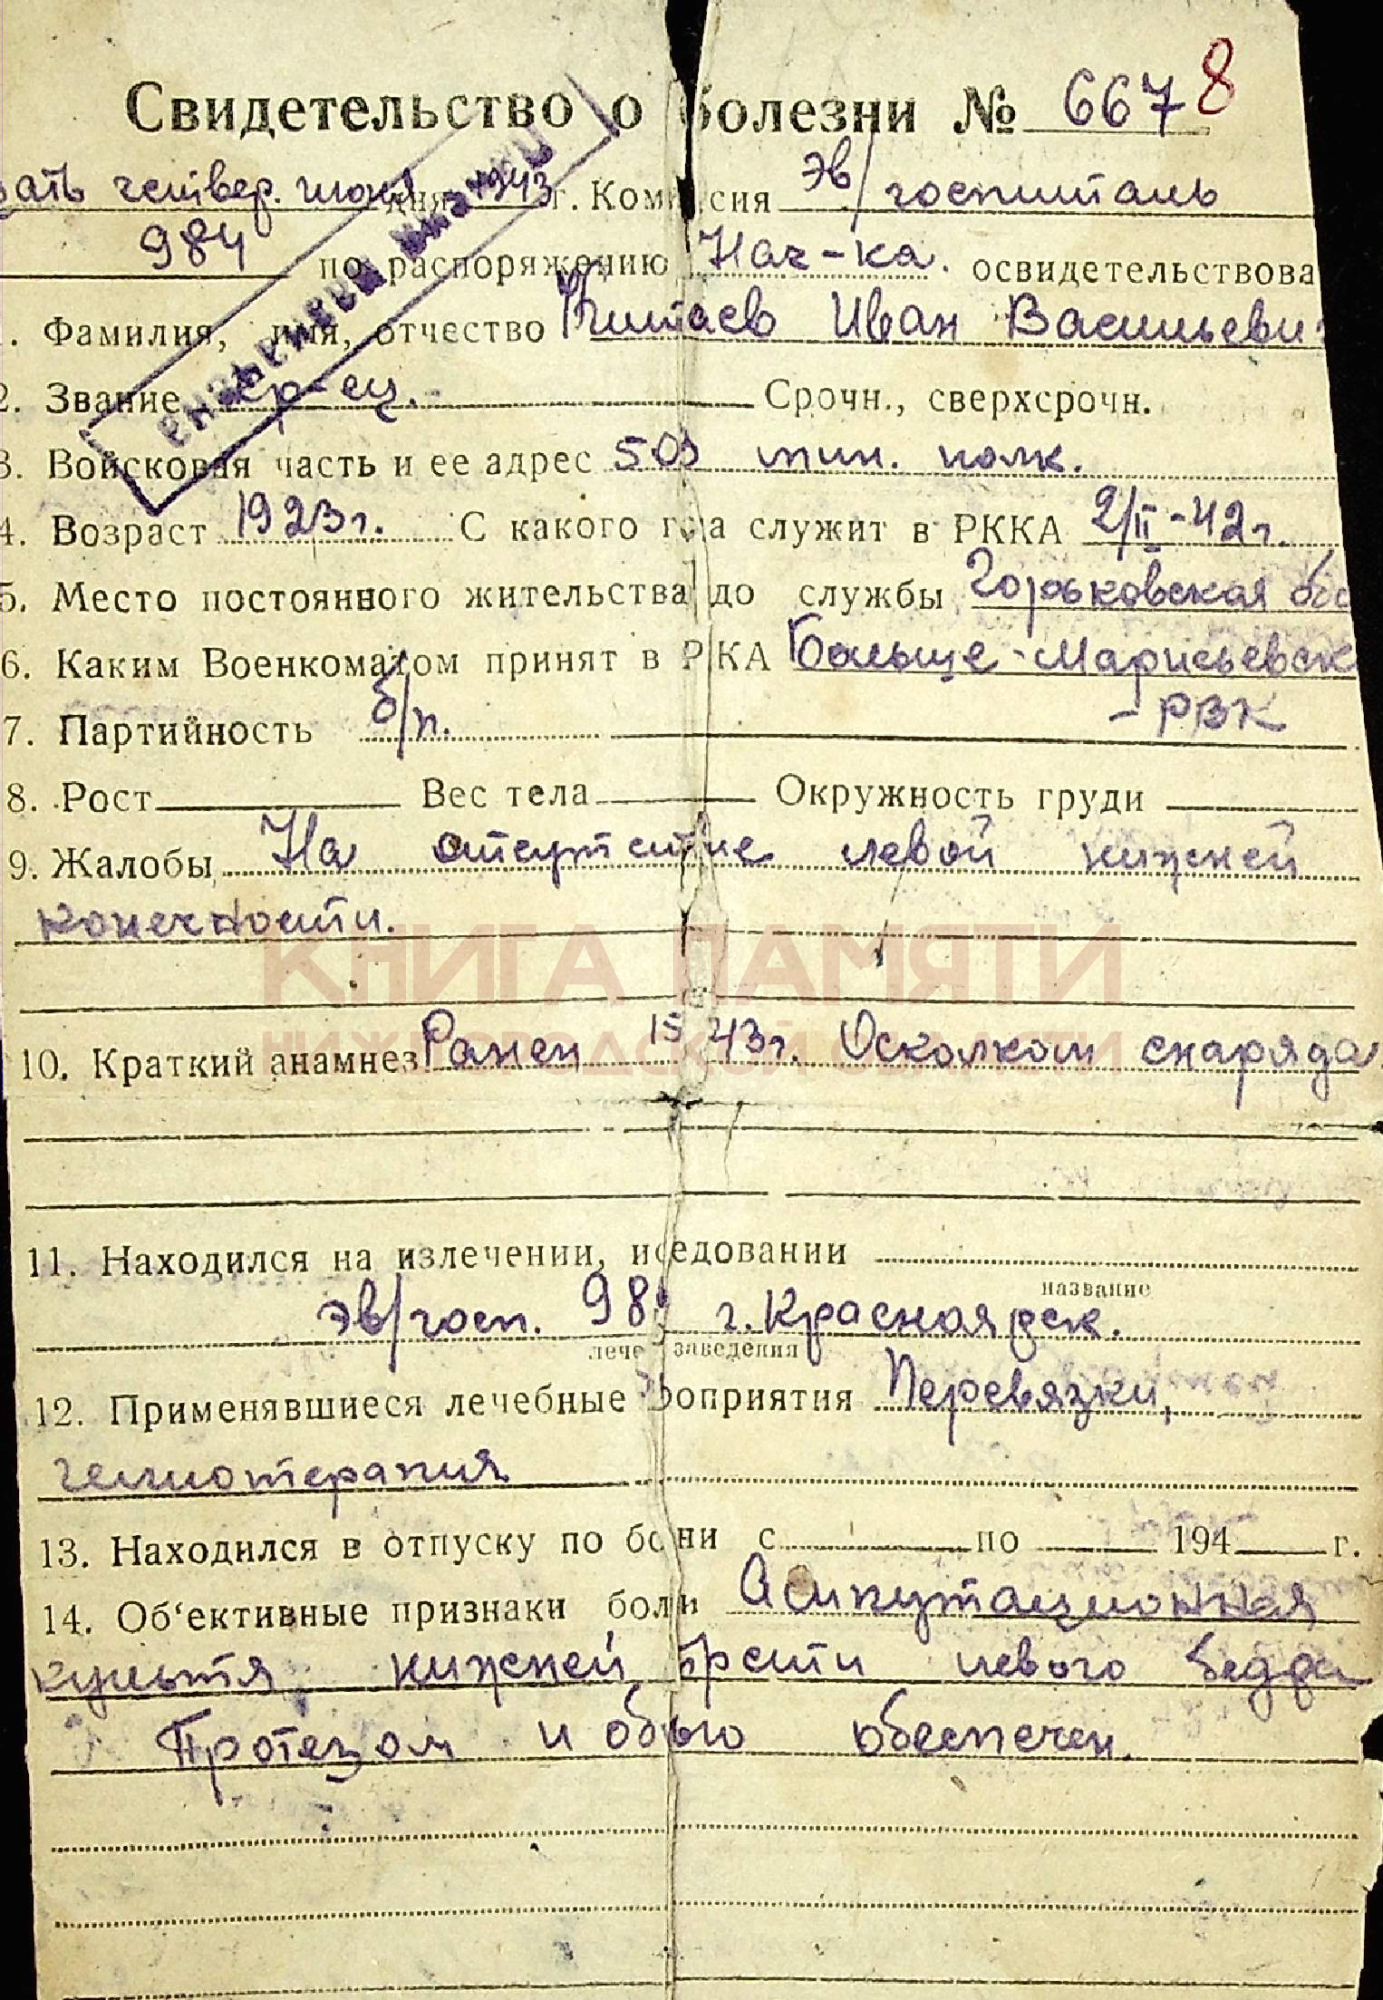 Свидетельство о болезни № 6678
ать четвер. июня дня 1943 г. Комиссия эв/госпиталь
984 по распоряжению Нач-ка. освидетельствова
. Фамилия, имя, отчество Иван Васильеви
2. Звание кр-ец. Срочн., сверхсрочн.
3. Войсковая часть и ее адрес 503 мин. полк.
4. Возраст 1923 г. С какого г а служит в РККА 2/II-42 г.
5. Место постоянного жительства до службы Горьковская обл
6. Каким Военкоматом принят в РККА Больше-Марисьевск
7. Партийность б/п. - РВК
8. Рост Вес тела Окружность груди
9. Жалобы На отсутствие левой нижней
конечности.
КНИГА ПАМЯТИ
НИЖЕГОРОДСКОЙ ОБЛАСТИ
10. Краткий анамнез Ранен 43 г. Осколком снаряда
11. Находился на излечении, и едовании
название
эв/госп. 98 г. Красноярск.
лече заведения
12. Применявшиеся лечебные роприятия Перевязки,
гелиотерапия
13. Находился в отпуску по бо ни с по 194 г.
14. Об‘ективные признаки бол и Ампутационная
культя нижней трети левого бедра
Протезом и обувью обеспечен.